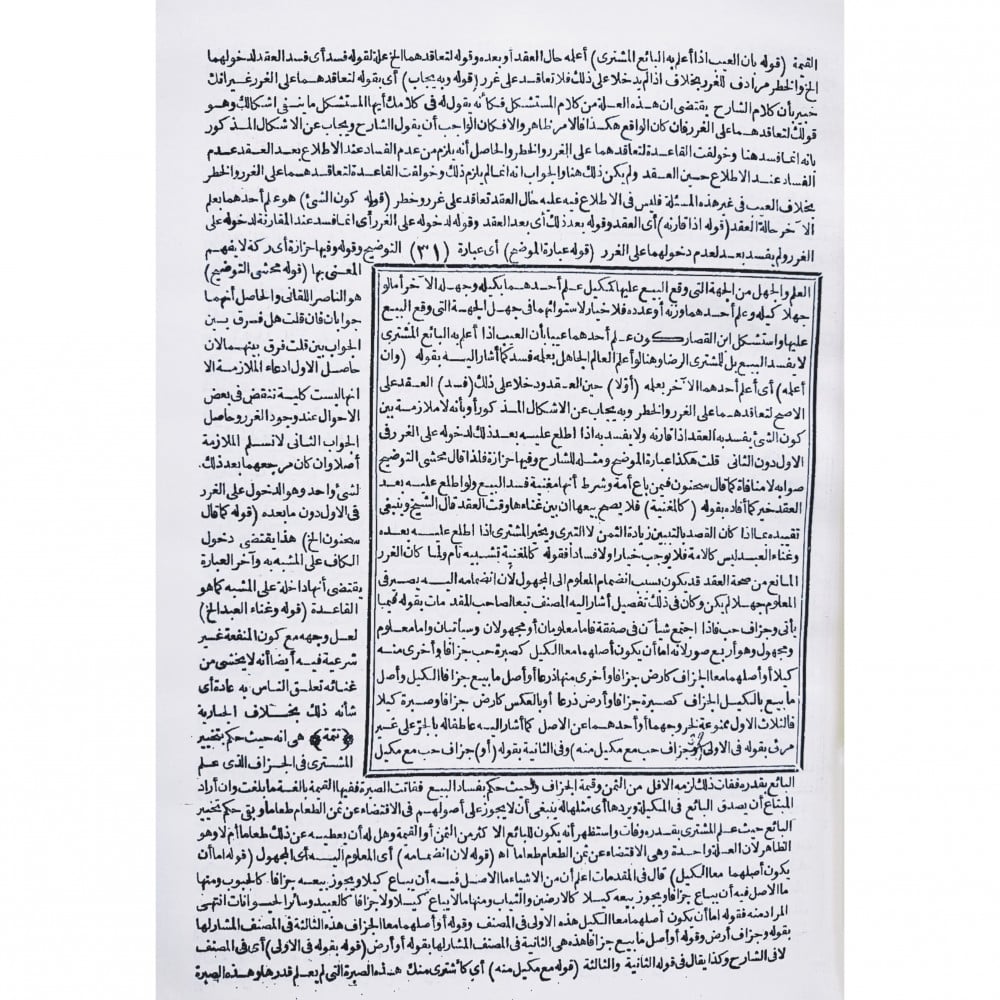 القيمة (قوله بان العيب اذا أعلم به البائع المشترى) أعلمه حال العقد أو بعده وقوله لتعاقدهما الخ علة لقوله فسد أى فسد العقد لدخولهما
الخ والخطر مرادف للغرر بخلاف اذا لم يدخلا على ذلك فلا تعاقد على غرر (قوله وبه يجاب) أى بقوله لتعاقدهما على الغرر غير انك
خبير بأن كلام الشارح يقتضى ان هذه العلة من كلام المستشكل فكأنه يقول له فى كلامك أيها المستشكل ما ينفى اشكالك وهو
قولك لتعاقدهما على الغرر فان كان الواقع هكذا فالامر ظاهر والافكان الواجب أن يقول الشارح ويجاب عن الاشكال المذكور
بانه انما فسد هنا وخولفت القاعدة لتعاقدهما على الغرر والخطر والحاصل أنه يلزم من عدم الفساد عند الاطلاع بعد العقد عدم
الفساد عند الاطلاع حين العقد ولم يكن ذلك هنا والجواب انه انما لم يلزم ذلك وخولفت القاعدة لتعاقدهما على الغرر والخطر
بخلاف العيب فى غير هذه المسئلة فليس فى الاطلاع فيه عليه حال العقد تعاقد على غرر وخطر (قوله كون الشئ) هو علم أحدهما بعلم
الآخر حالة العقد (قوله اذا قارنه) أى العقد وقوله بعد ذلك أى بعد العقد وقوله لدخوله على الغرر أى انما فسد عند المقارنة لدخوله على
الغرر ولم يفسد بعد لعدم دخولهما على الغرر (قوله عبارة الموضح) أى عبارة (٣١) التوضيح وقوله وفيها حزازة أى ركة لا يفهم
المعنى بها (قوله محشى التوضيح)
هو الناصر اللقانى والحاصل أنهما
جوابان فان قلت هل فرق بين
الجواب بين قلت فرق بينهما لان
حاصل الاول ادعاء الملازمة الا
انها ليست كلية تنتقض فى بعض
الاحوال عند وجود الغرر وحاصل
الجواب الثانى لا نسلم الملازمة
أصلا وان كان مرجعهما بعد ذلك
لشئ واحد وهو الدخول على الغرر
فى الاول دون ما بعده (قوله كما قال
سحنون الخ) هذا يقتضى دخول
الكاف على المشبه به وآخر العبارة
يقتضى أنها داخلة على المشبه كما هو
القاعدة (قوله وغناء العبد الخ)
لعل وجهه مع كون المنفعة غير
شرعية فيه أيضا أنه لا يخشى من
غنائه تعلق الناس به عادة أى
شأنه ذلك بخلاف الجارية
﴿تتمة﴾ هى انه حيث حكم بتخيير
المشترى فى الجزاف الذى علم
العلم والجهل من الجهة التى وقع البيع عليها كمكيل علم أحدهما بكيله وجهله الآخر أما لو
جهلا كيله وعلم أحدهما وزنه أو عدده فلا خيار لاستوائهما فى جهل الجهة التى وقع البيع
عليها واستشكل ابن القصار كون علم أحدهما عيبا بأن العيب اذا أعلم به البائع المشترى
لا يفسد البيع بل للمشترى الرضا وهنا لو أعلم العالم الجاهل بعلمه فسد كما أشار اليه بقوله (وان
أعلمه) أى أعلم أحدهما الآخر بعلمه (أولا) حين العقد ودخلا على ذلك (فسد) العقد على
الاصح لتعاقدهما على الغرر والخطر وبه يجاب عن الاشكال المذكور أو بأنه لا ملازمة بين
كون الشئ يفسد به العقد اذا قارنه ولا يفسد به اذا اطلع عليه بعد ذلك لدخوله على الغرر فى
الاول دون الثانى قلت هكذا عبارة الموضح ومثله للشارح وفيها حزازة فلذا قال محشى التوضيح
صوابه لا منافاة كما قال سحنون فيمن باع أمة وشرط أنها مغنية فسد البيع ولو اطلع عليه بعد
العقد خير كما أفاده بقوله (كالمغنية) فلا يصح بيعها ان بين غناءها وقت العقد قال الشيخ وينبغى
تقييده بما اذا كان القصد بالتبيين زيادة الثمن لا التبرى ويخير المشترى اذا اطلع عليه بعده
وغناء العبد ليس كالامة فلا يوجب خيارا ولا فسادا فقوله كالمغنية تشبيه تام ولما كان الغرر
المانع من صحة العقد قد يكون بسبب انضمام المعلوم الى المجهول لأن انضمامه اليه يصير فى
المعلوم جهلا لم يكن وكان فى ذلك تفصيل أشار اليه المصنف تبعا لصاحب المقدمات بقوله فيما
يأتى وجزاف حب فاذا اجتمع شيآن فى صفقة فاما معلومان أو مجهولان وسيأتيان واما معلوم
ومجهول وهو أربع صور لانه اما أن يكون أصلهما معا الكيل كصبرة حب جزافا وأخرى منه
كيلا أو أصلهما معا الجزاف كارض جزافا وأخرى منها ذرعا أو أصل ما بيع جزافا الكيل وأصل
ما بيع بالكيل الجزاف كصبرة جزافا وأرض ذرعا أو بالعكس كارض جزافا وصبرة كيلا
فالثلاث الاول ممنوعة لخروجهما أو أحدهما عن الاصل كما أشار اليه عاطفا له بالجر على غير
مرئى بقوله فى الاولى (وجزاف حب مع مكيل منه) وفى الثانية بقوله (أو) جزاف حب مع مكيل
البائع بقدره ففات ذلك لزمه الاقل من الثمن وقيمة الجزاف وحيث حكم بفساد البيع ففاتت الصبرة ففيها القيمة بالغة ما بلغت وان أراد
المبتاع أن يصدق البائع فى المكيلة ويردها أى مثلها له ينبغى أن لا يجوز على أصولهم فى الاقتضاء عن ثمن الطعام طعاما وبقى حكم تخيير
البائع حيث علم المشترى بقدره وفات واستظهر أنه يكون للبائع الاكثر من الثمن أو القيمة وهل له أن يعطيه عن ذلك طعاما أم لا وهو
الظاهر لان العلة واحدة وهى الاقتضاء عن ثمن الطعام طعاما اه (قوله لان انضمامه) أى المعلوم اليه أى المجهول (قوله اما أن
يكون أصلهما معا الكيل) قال فى المقدمات اعلم أن من الاشياء ما الاصل فيه أن يباع كيلا ويجوز بيعه جزافا كالحبوب ومنها
ما الاصل فيه أن يباع جزافا ويجوز بيعه كيلا كالارضين والثياب ومنها ما لا يباع كيلا ولا جزافا كالعبيد وسائر الحيوانات انتهى
المراد منه فقوله اما أن يكون أصلهما معا الكيل هذه الاولى فى المصنف وقوله أو أصلهما معا الجزاف هذه الثالثة فى المصنف المشار لها
بقوله وجزاف أرض وقوله أو أصل ما بيع جزافا هذه هى الثانية فى المصنف المشار لها بقوله أو أرض (قوله بقوله فى الاولى) أى فى المصنف
لا فى الشارح وكذا يقال فى قوله الثانية والثالثة (قوله مع مكيل منه) أى كأشترى منك هذه الصبرة التى لم يعلم قدرها وهذه الصبرة